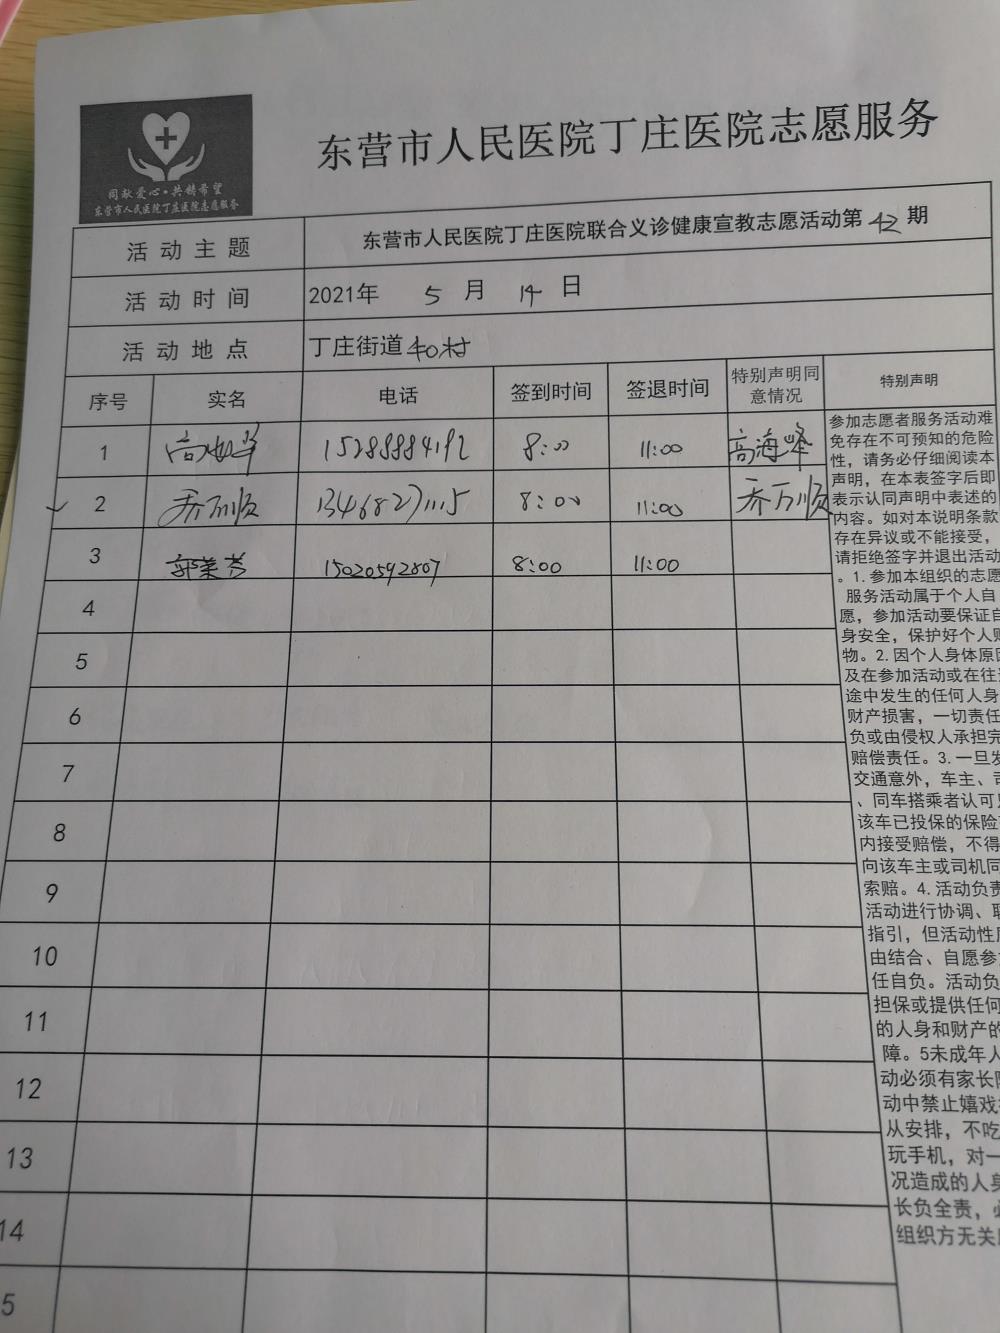 同献爱心·共铸希望
东营市人民医院丁庄医院志愿服务
东营市人民医院丁庄医院志愿服务
活动主题 东营市人民医院丁庄医院联合义诊健康宣教志愿活动第42期
活动时间 2021年 5 月 14 日
活动地点 丁庄街道和村
序号 实名 电话 签到时间 签退时间 特别声明同意情况 特别声明
1 高海峰 8:00 11:00 高海峰
2 乔万顺 8:00 11:00 乔万顺
3 15020592807 8:00 11:00
4
5
6
7
8
9
10
11
12
13
14
5
参加志愿者服务活动难
免存在不可预知的危险
性，请务必仔细阅读本
声明，在本表签字后即
表示认同声明中表述的
内容。如对本说明条款
存在异议或不能接受，
请拒绝签字并退出活动
。1.参加本组织的志愿
服务活动属于个人自
愿，参加活动要保证自
身安全，保护好个人财
物。2.因个人身体原因
及在参加活动或在往
途中发生的任何人身
财产损害，一切责任
负或由侵权人承担完
赔偿责任。3.一旦发
交通意外，车主、司
、同车搭乘者认可
该车已投保的保险
内接受赔偿，不得
向该车主或司机同
索赔。4.活动负责
活动进行协调、联
指引，但活动性质
由结合、自愿参
任自负。活动负
担保或提供任何
的人身和财产的
障。5未成年人
动必须有家长陪
动中禁止嬉戏
从安排，不吃
玩手机，对一
况造成的人身
长负全责，必
组织方无关